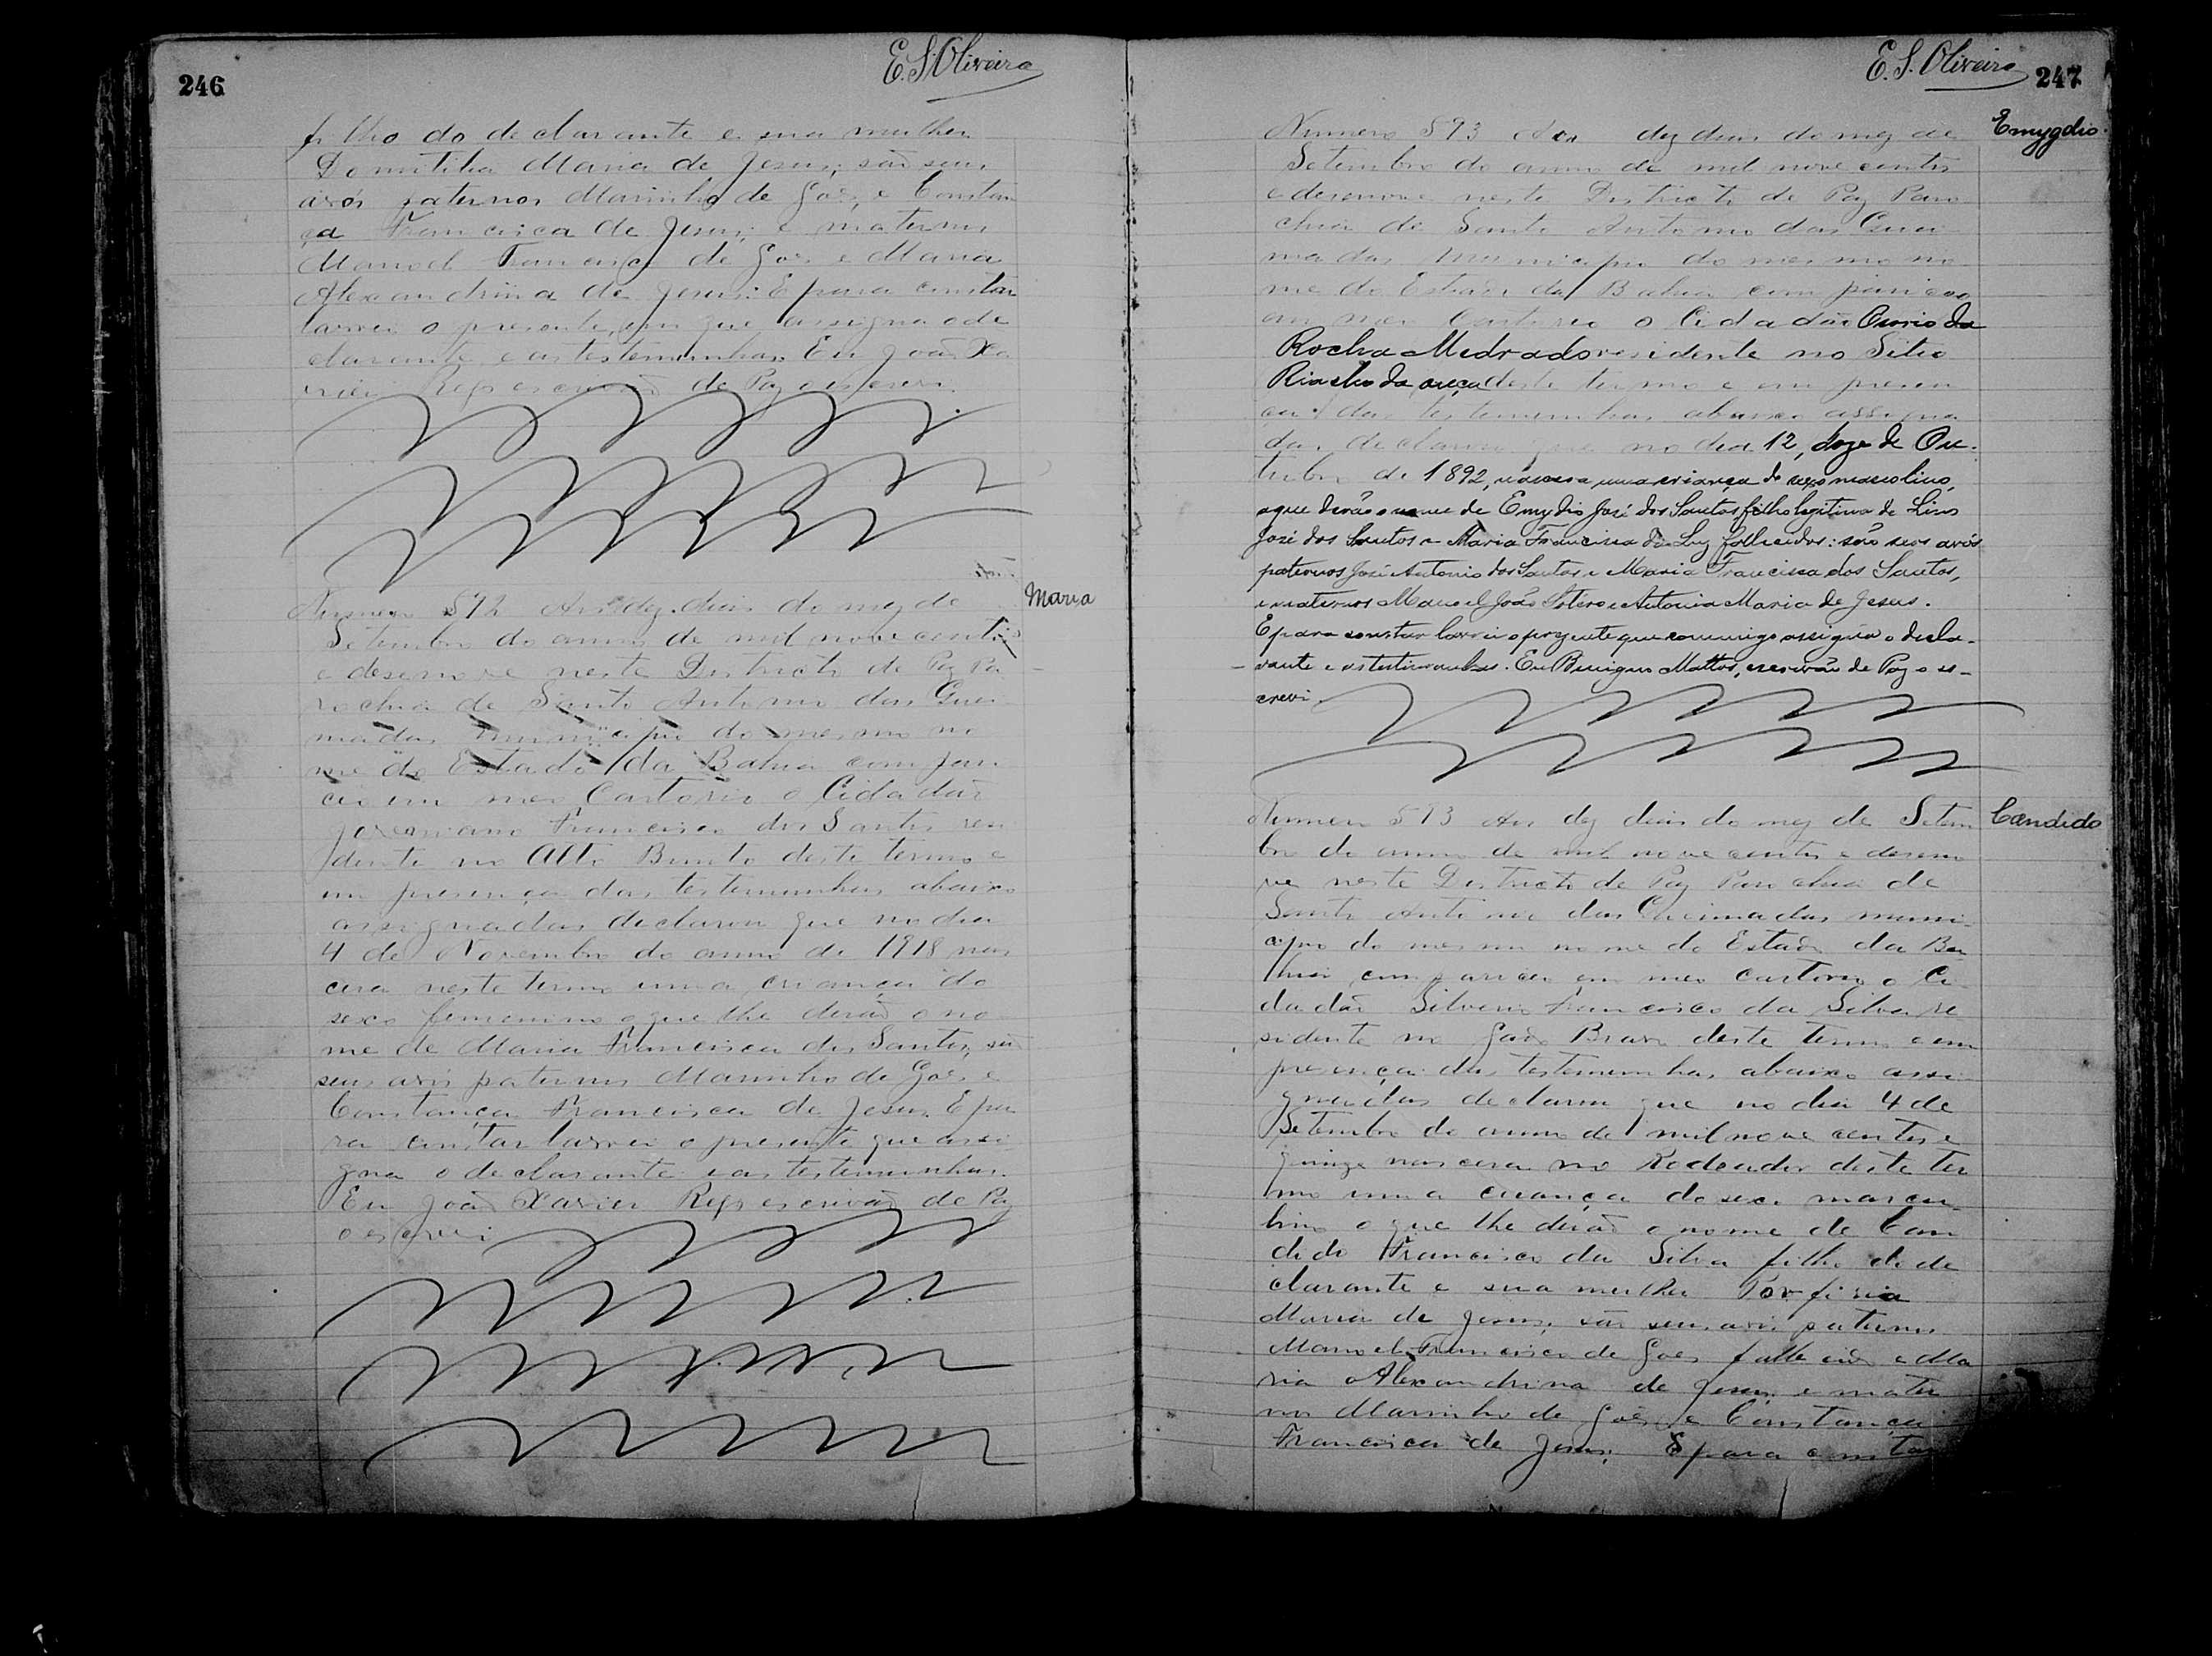 246
E. S. Oliveira
filho do declarante e sua mulher
Domitilia Maria de Jesus; são seus
avós paternos Marinho de Goes e Constan
ça Francisca de Jesus; e maternos
Manoel Francisco de Goes e Maria
Alexandrina de Jesus. E para constar
lavrei o presente, em que assigna o de
clarante e as testemunhas. Eu João Xa
vier Reps escrivão de Paz o escrevi.
Numero 592 Aos dez dias do mez de
Maria
Setembro do anno de mil nove centos
e desenove neste Districto de Paz Pa
rochia de Santo Antonio das Quei
madas municipio do mesmo no
me do Estado da Bahia compare
ceo em meo Cartorio o Cidadão
Francisco dos Santos resi
dente no Alto Bonito deste termo e
em presença das testemunhas abaixo
assignadas declarou que no dia
4 de Novembro do anno de 1918 nas
cera neste termo uma criança do
sexo femenino o que lhe derão o no
me de Maria Francisca dos Santos, são
seus avós paternos Marinho de Goes e
Constança Francisca de Jesus. E pa
ra constar lavrei o presente que assi
gna o declarante e as testemunhas.
Eu João Xavier Reps escrivão de Paz
o escrevi
E. S. Oliveira
247
Numero 593 Aos dez dias do mez de
Emygdio.
Setembro do anno de mil nove centos
e desenove neste Districto de Paz Paro
chia de Santo Antonio das Quei
madas Municipio do mesmo no
me do Estado da Bahia compareceo
em meo Cartorio o Cidadão da
Rocha Medrado residente no Sitio
Riacho da onça deste termo e em presen
ça das testemunhas abaixo assigna
das, declarou que no dia 12, doze de Ou-
tubro de 1892, nascera uma criança do sexo masculino,
a que derão o nome de Emydio José dos Santos filho legitimo de Lino
José dos Santos e Maria Francisca da Luz fallecidos: são seos avós
paternos José Antonio dos Santos e Maria Francisca dos Santos,
e maternos Manoel João Sotero e Antonia Maria de Jesus.
E para constar lavrei o prezente que commigo assigna o decla-
rante e as testimunhas. Eu Benigno Mattos, escrivão de Paz o es-
crevi.
Numero 593 Aos dez dias do mez de Setem
Candido
bro do anno de mil nove centos e deseno
ve neste Districto de Paz Parochia de
Santo Antonio das Queimadas muni
cipio do mesmo nome do Estado da Ba
hia, compareceo em meo Cartorio o Ci
dadão Silverio Francisco da Silva re
sidente no Gado Bravo deste termo e em
presença das testemunhas abaixo assi
gnadas declarou que no dia 4 de
Setembro do anno de mil nove centos e
quinze nascera no Rodeador deste ter
mo uma criança do sexo mascu
lino o que lhe derão o nome de Can
dido Francisco da Silva filho do de
clarante e sua mulher Porfiria
Maria de Jesus, são seus avós paternos
Manoel Francisco de Goes fallecido e Ma
ria Alexandrina de Jesus e mater
nos Marinho de Goes, e Constança
Francisca de Jesus; E para constar